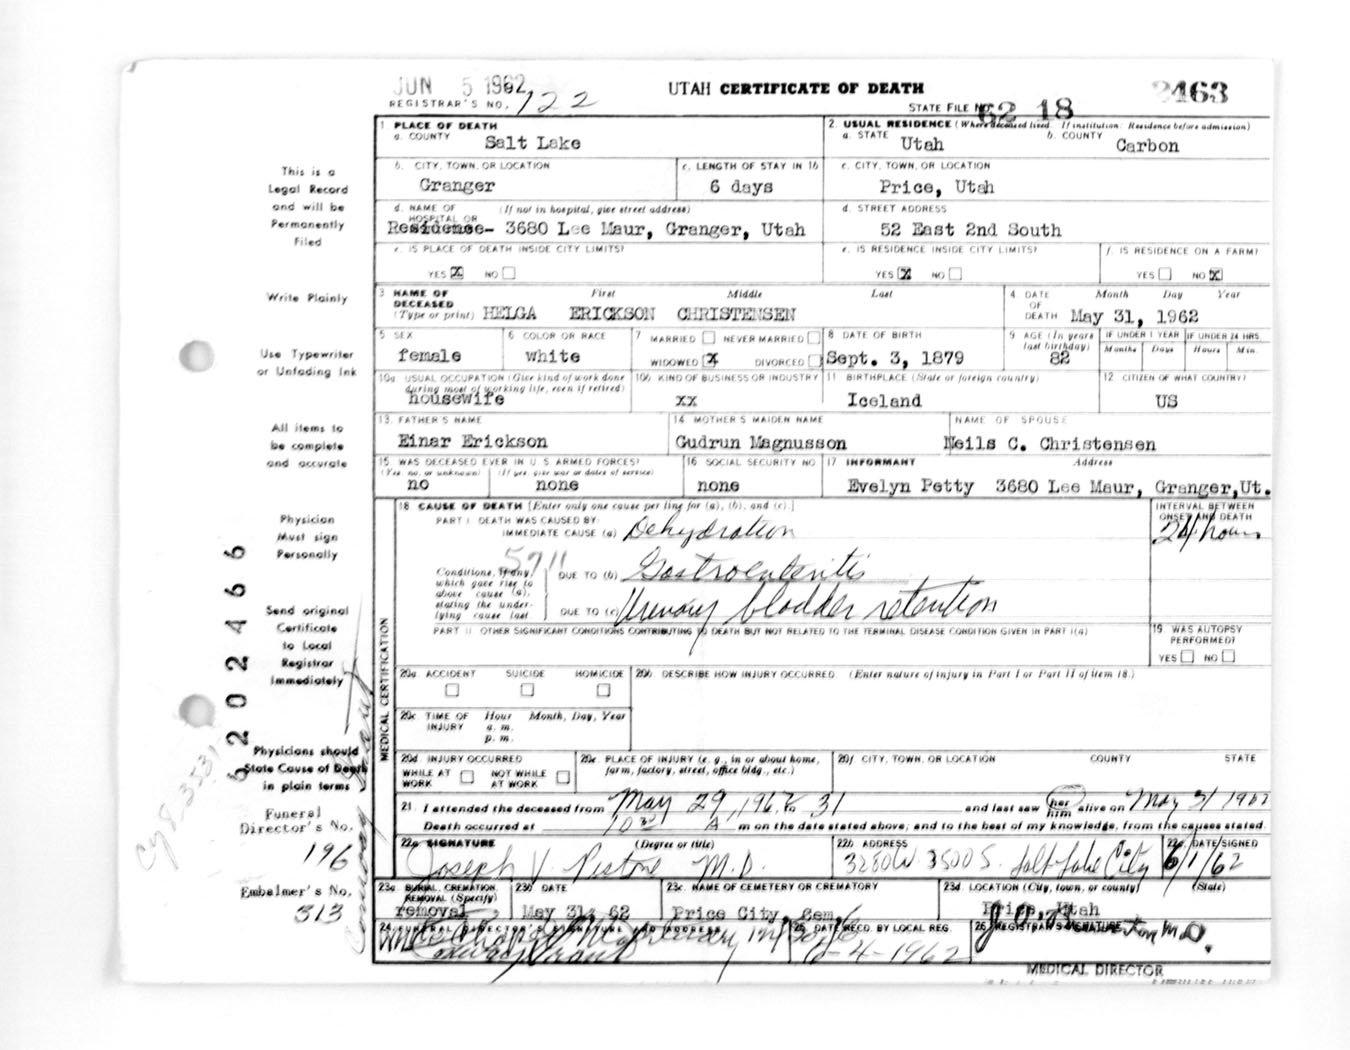 JUN 5 1962
UTAH CERTIFICATE OF DEATH
2463
REGISTRAR'S NO. 122
STATE FILE NO. 62 18
1. PLACE OF DEATH
a. COUNTY Salt Lake
2. USUAL RESIDENCE (Where deceased lived. If institution: Residence before admission)
a. STATE Utah b. COUNTY Carbon
b. CITY, TOWN, OR LOCATION Granger
c. LENGTH OF STAY IN 1b 6 days
c. CITY, TOWN, OR LOCATION Price, Utah
d. NAME OF HOSPITAL OR (If not in hospital, give street address)
Residence- 3680 Lee Maur, Granger, Utah
d. STREET ADDRESS
52 East 2nd South
e. IS PLACE OF DEATH INSIDE CITY LIMITS?
YES X NO
e. IS RESIDENCE INSIDE CITY LIMITS?
YES X NO
f. IS RESIDENCE ON A FARM?
YES NO X
3. NAME OF DECEASED (Type or print) First Middle Last
HELGA ERICKSON CHRISTENSEN
4. DATE OF DEATH Month Day Year
May 31, 1962
5. SEX female
6. COLOR OR RACE white
7. MARRIED NEVER MARRIED
WIDOWED X DIVORCED
8. DATE OF BIRTH
Sept. 3, 1879
9. AGE (In years last birthday) 82
IF UNDER 1 YEAR Months Days
IF UNDER 24 HRS. Hours Min.
10a. USUAL OCCUPATION (Give kind of work done during most of working life, even if retired)
housewife
10b. KIND OF BUSINESS OR INDUSTRY
xx
11. BIRTHPLACE (State or foreign country)
Iceland
12. CITIZEN OF WHAT COUNTRY?
US
13. FATHER'S NAME
Einar Erickson
14. MOTHER'S MAIDEN NAME
Gudrun Magnusson
NAME OF SPOUSE
Neils C. Christensen
15. WAS DECEASED EVER IN U.S. ARMED FORCES?
(Yes, no, or unknown) (If yes, give war or dates of service)
no none
16. SOCIAL SECURITY NO.
none
17. INFORMANT Address
Evelyn Petty 3680 Lee Maur, Granger, Ut.
18. CAUSE OF DEATH [Enter only one cause per line for (a), (b), and (c).]
INTERVAL BETWEEN ONSET AND DEATH
PART I. DEATH WAS CAUSED BY:
IMMEDIATE CAUSE (a) Dehydration 24 hours
5711
Conditions, if any, which gave rise to above cause (a), stating the under-lying cause last
DUE TO (b) Gastroenteritis
DUE TO (c) Urinary bladder retention
PART II. OTHER SIGNIFICANT CONDITIONS CONTRIBUTING TO DEATH BUT NOT RELATED TO THE TERMINAL DISEASE CONDITION GIVEN IN PART I(a)
19. WAS AUTOPSY PERFORMED?
YES NO
MEDICAL CERTIFICATION
20a. ACCIDENT SUICIDE HOMICIDE
20b. DESCRIBE HOW INJURY OCCURRED. (Enter nature of injury in Part I or Part II of item 18.)
20c. TIME OF INJURY Hour Month, Day, Year
a. m.
p. m.
20d. INJURY OCCURRED
WHILE AT WORK NOT WHILE AT WORK
20e. PLACE OF INJURY (e. g., in or about home, farm, factory, street, office bldg., etc.)
20f. CITY, TOWN, OR LOCATION COUNTY STATE
21. I attended the deceased from May 29, 1962 to 31 and last saw her him alive on May 31 1962
Death occurred at 10 30 A m on the date stated above; and to the best of my knowledge, from the causes stated.
22a. SIGNATURE (Degree or title)
Joseph V. Pistone M.D.
22b. ADDRESS
3280 W. 3500 S. Salt Lake City
22c. DATE SIGNED
6/1/62
23a. BURIAL, CREMATION, REMOVAL (Specify)
removal
23b. DATE
May 31, 62
23c. NAME OF CEMETERY OR CREMATORY
Price City, Cem.
23d. LOCATION (City, town, or county) (State)
Price, Utah
24. FUNERAL DIRECTOR'S SIGNATURE AND ADDRESS
25. DATE RECD. BY LOCAL REG.
6-4-1962
26. REGISTRAR'S SIGNATURE
M.D.
MEDICAL DIRECTOR
This is a
Legal Record
and will be
Permanently
Filed
Write Plainly
Use Typewriter
or Unfading Ink
All items to
be complete
and accurate
Physician
Must sign
Personally
Send original
Certificate
to Local
Registrar
Immediately
Physicians should
State Cause of Death
in plain terms
Funeral
Director's No.
196
Embalmer's No.
313
6202466